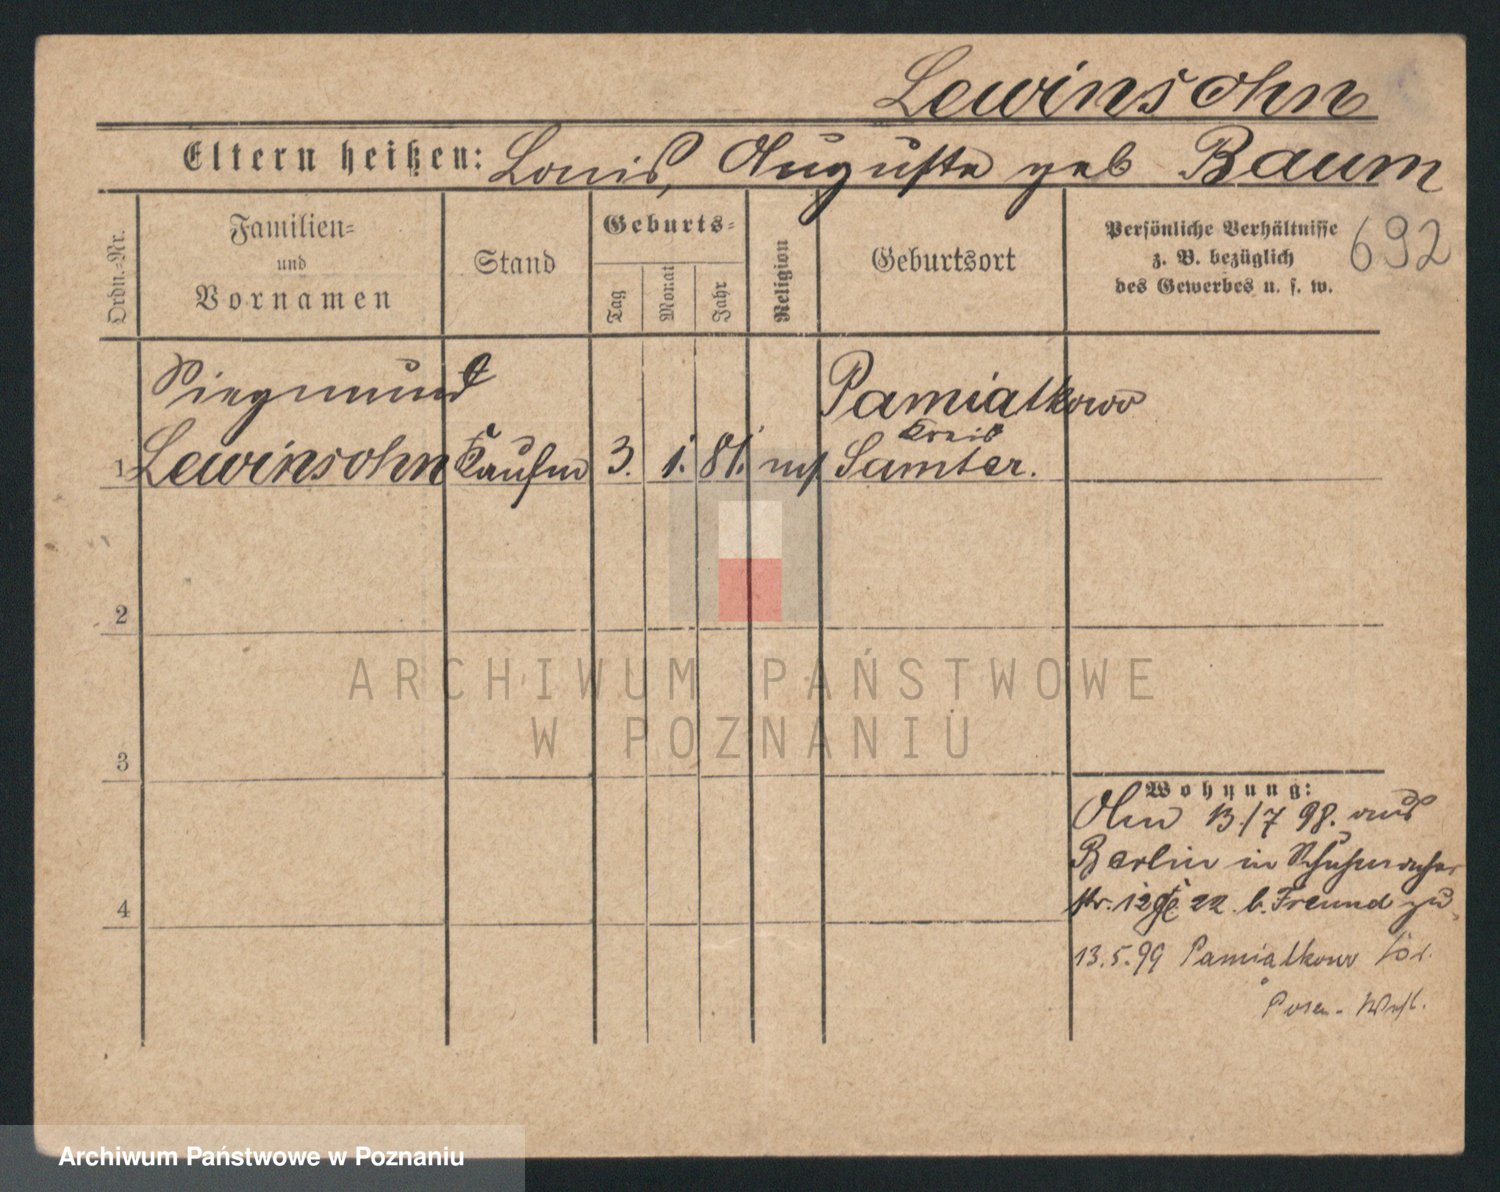 Lewinsohn
Eltern heißen: Louis, Auguste geb Baum
Ordn.-Nr.
Familien-
und
Vornamen
Stand
Geburts-
Tag
Monat
Jahr
Religion
Geburtsort
Persönliche Verhältnisse
z. B. bezüglich
des Gewerbes u. s. w.
692
Siegmund
Pamiatkowo
Kreis
1 Lewinsohn Kaufm 3. 1. 81. mos Samter.
2
ARCHIWUM PAŃSTWOWE
W POZNANIU
3
Wohnung:
13./7 98. aus
Berlin in Schuhmacher
str. 12 22 b. Freund zu
4
13.5.99 Pamiatkowo
Posen-West.
Archiwum Państwowe w Poznaniu